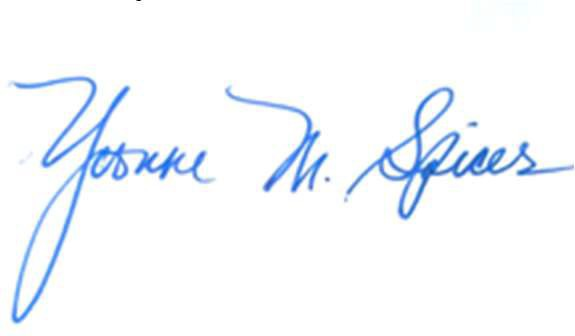 Yvonne M. Spicer